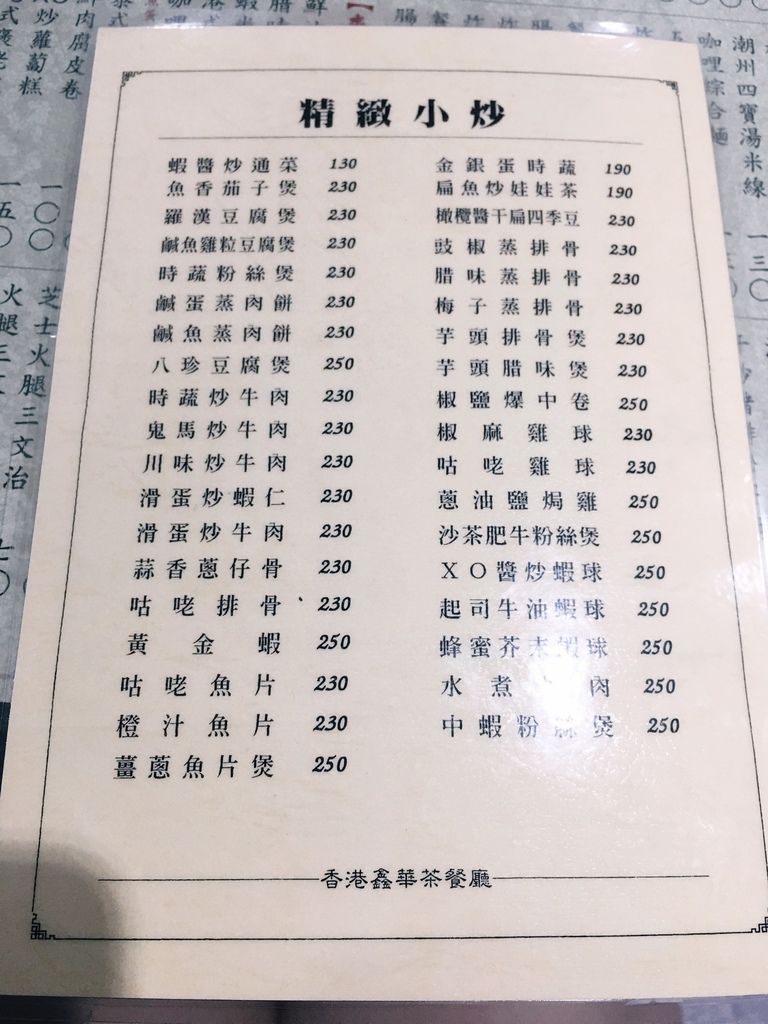 精緻小炒
蝦醬炒通菜 130
魚香茄子煲 230
羅漢豆腐煲 230
鹹魚雞粒豆腐煲 230
時蔬粉絲煲 230
鹹蛋蒸肉餅 230
鹹魚蒸肉餅 230
八珍豆腐煲 250
時蔬炒牛肉 230
鬼馬炒牛肉 230
川味炒牛肉 230
滑蛋炒蝦仁 230
滑蛋炒牛肉 230
蒜香蔥仔骨 230
咕咾排骨 230
黃金蝦 250
咕咾魚片 230
橙汁魚片 230
薑蔥魚片煲 250
金銀蛋時蔬 190
扁魚炒娃娃茶 190
橄欖醬干扁四季豆 230
豉椒蒸排骨 230
腊味蒸排骨 230
梅子蒸排骨 230
芋頭排骨煲 230
芋頭腊味煲 230
椒鹽爆中卷 250
椒麻雞球 230
咕咾雞球 230
蔥油鹽焗雞 250
沙茶肥牛粉絲煲 250
XO醬炒蝦球 250
起司牛油蝦球 250
蜂蜜芥末蝦球 250
水煮 肉 250
中蝦粉絲煲 250
香港鑫華茶餐廳
潮州四寶湯米線
咖哩綜合麵
炒蘿蔔糕
鮮肉腐皮卷
芝士火腿三文治